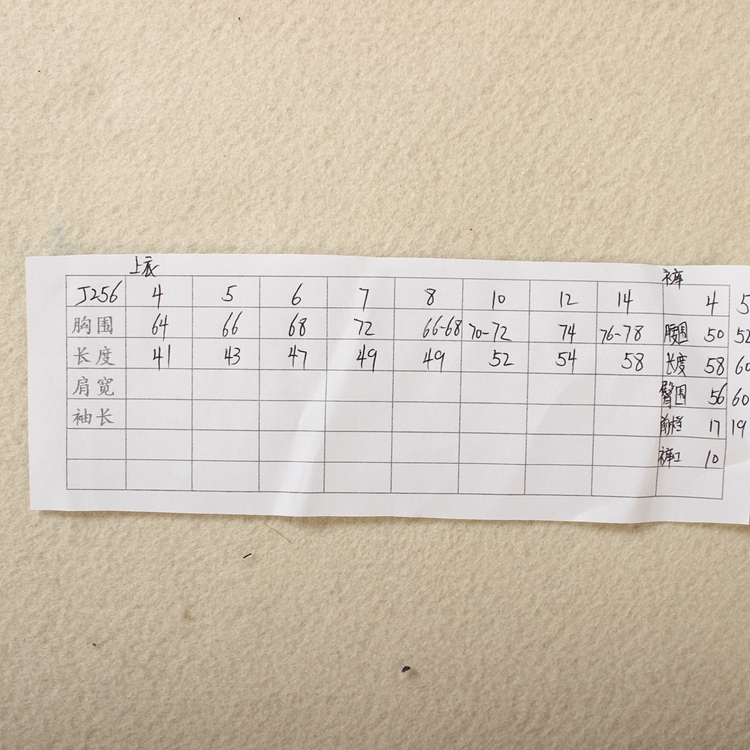 上衣 裤
J256 4 5 6 7 8 10 12 14 4 5
胸围 64 66 68 72 66-68 70-72 74 76-78 腰围 50 52
长度 41 43 47 49 49 52 54 58 长度 58 60
肩宽 臀围 56 60
袖长 前档 17 19
裤口 10